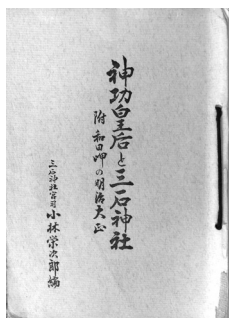 神功皇后と三石神社
附 和田岬の明治大正
三石神社宮司 小林榮次郎編